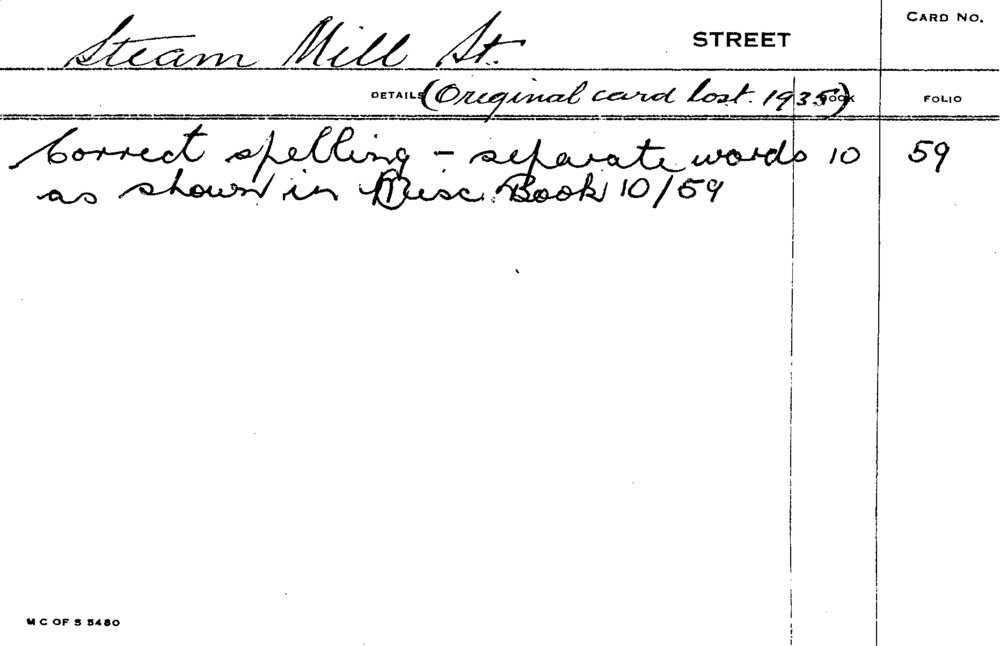 CARD NO.
Steam Mill St. STREET
DETAILS (Original card lost. 1935) BOOK FOLIO
Correct spelling - separate words 10 59
as shown in Misc. Book 10/59
M C OF S 5480